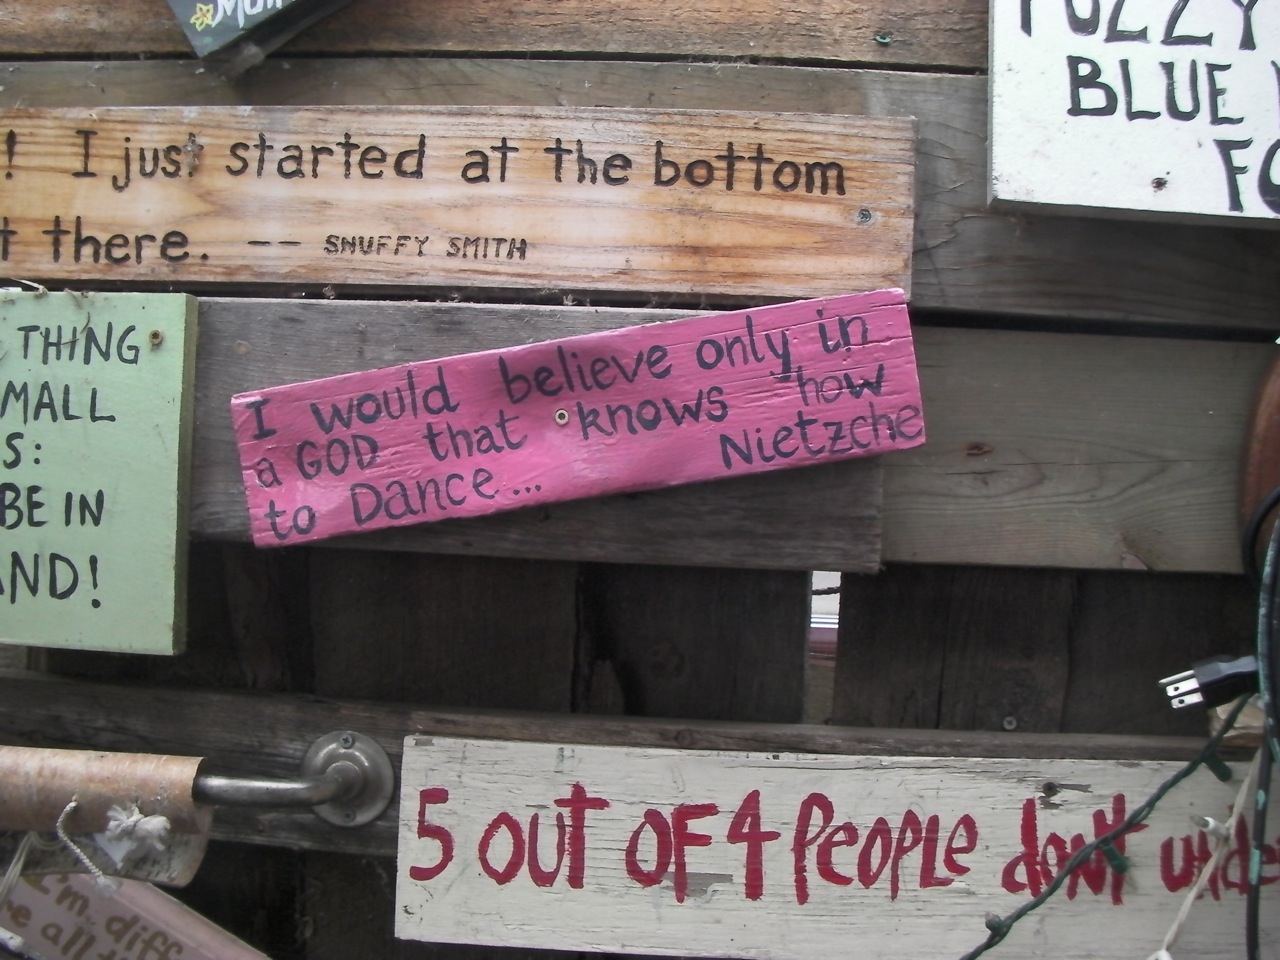 FUZZY
BLUE
! I just started at the bottom
there. -- SNUFFY SMITH
THING
MALL
S:
BE IN
AND!
I would believe only in
a GOD that knows how
to Dance... Nietzche
5 OUT OF 4 People don't unde
I'm diff
all